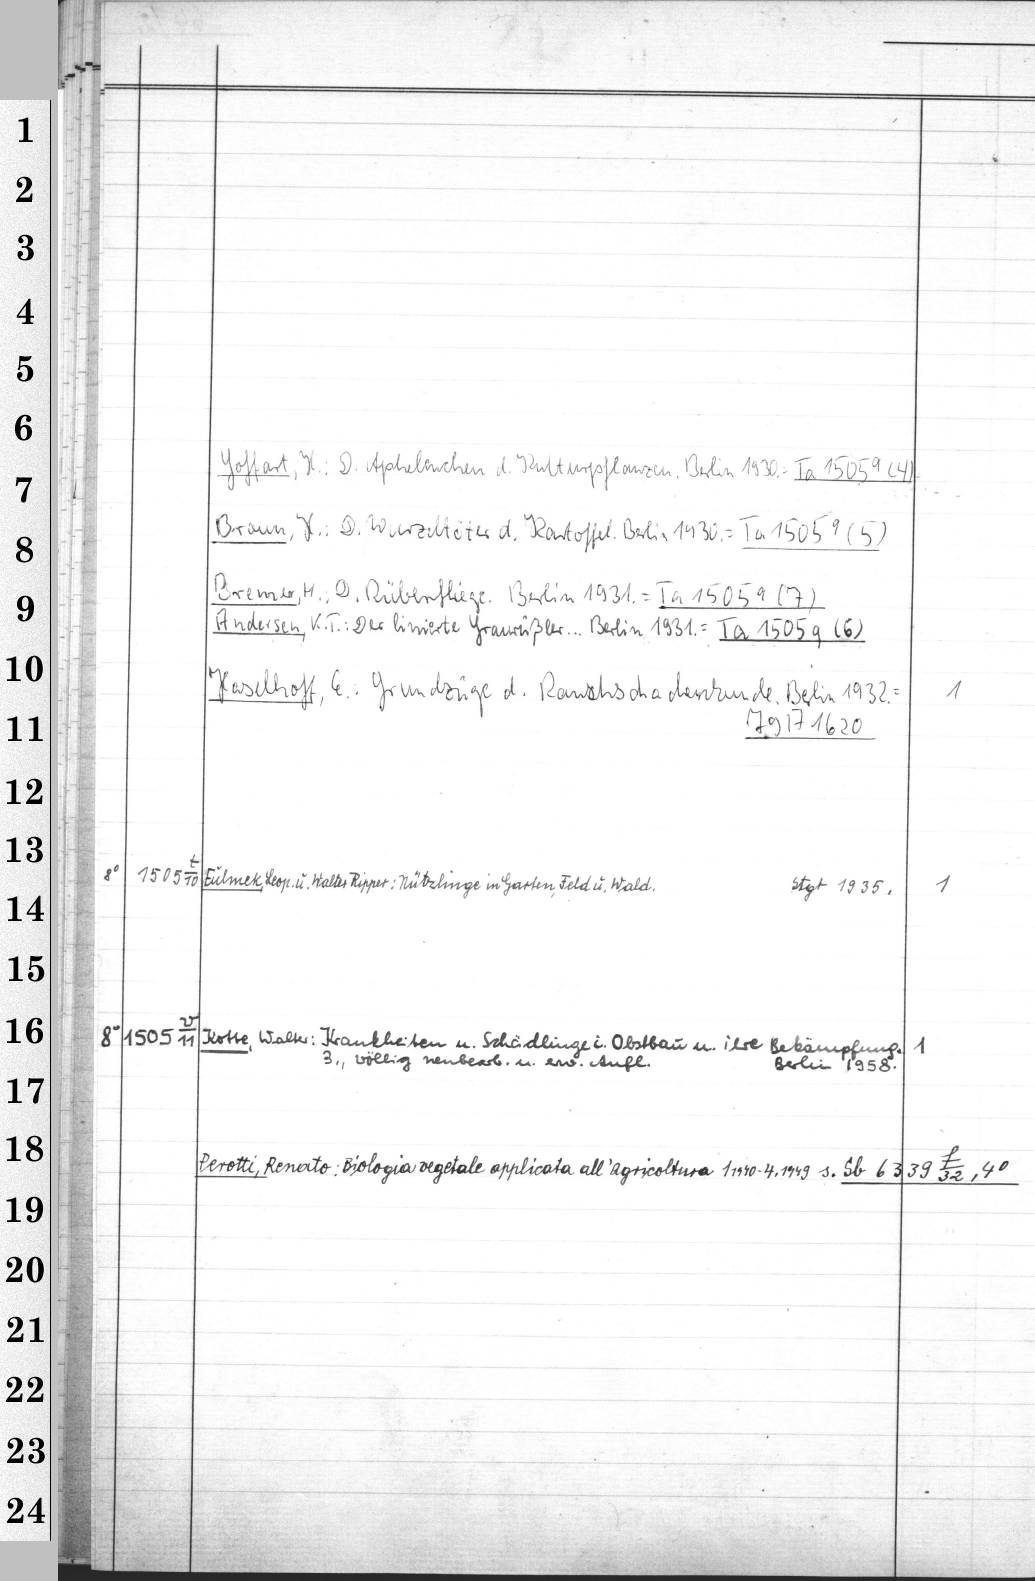 1
2
3
4
5
6
7
8
9
10
11
12
13
14
15
16
17
18
19
20
21
22
23
24
Goffart, H.: D. Aphelenchen d. Kulturpflanzen. Berlin 1930.= Ta 1505 q (4)
Braun, H.: D. Wurzeltöter d. Kartoffel. Berlin 1930.= Ta 1505 q (5)
Bremer, H.: D. Rübenfliege. Berlin 1931.= Ta 1505 q (7)
Andersen, K.T.: Der linierte Graurüßler... Berlin 1931.= Ta 1505 q (6)
Haselhoff, E.: Grundzüge d. Rauchschadenkunde. Berlin 1932.= 1
7917 1620
8° 1505 t/10 Fulmek, Leop. u. Walter Ripper: Nützlinge in Garten, Feld u. Wald. Stgt 1935. 1
8° 1505 v/11 Kotte, Walter: Krankheiten u. Schädlinge i. Obstbau u. ihre Bekämpfung. 1
3., völlig neubearb. u. erw. Aufl. Berlin 1958.
Perotti, Renato: Biologia vegetale applicata all'Agricoltura 1.1940-4.1949 s. Sb 6339 f/32, 4°